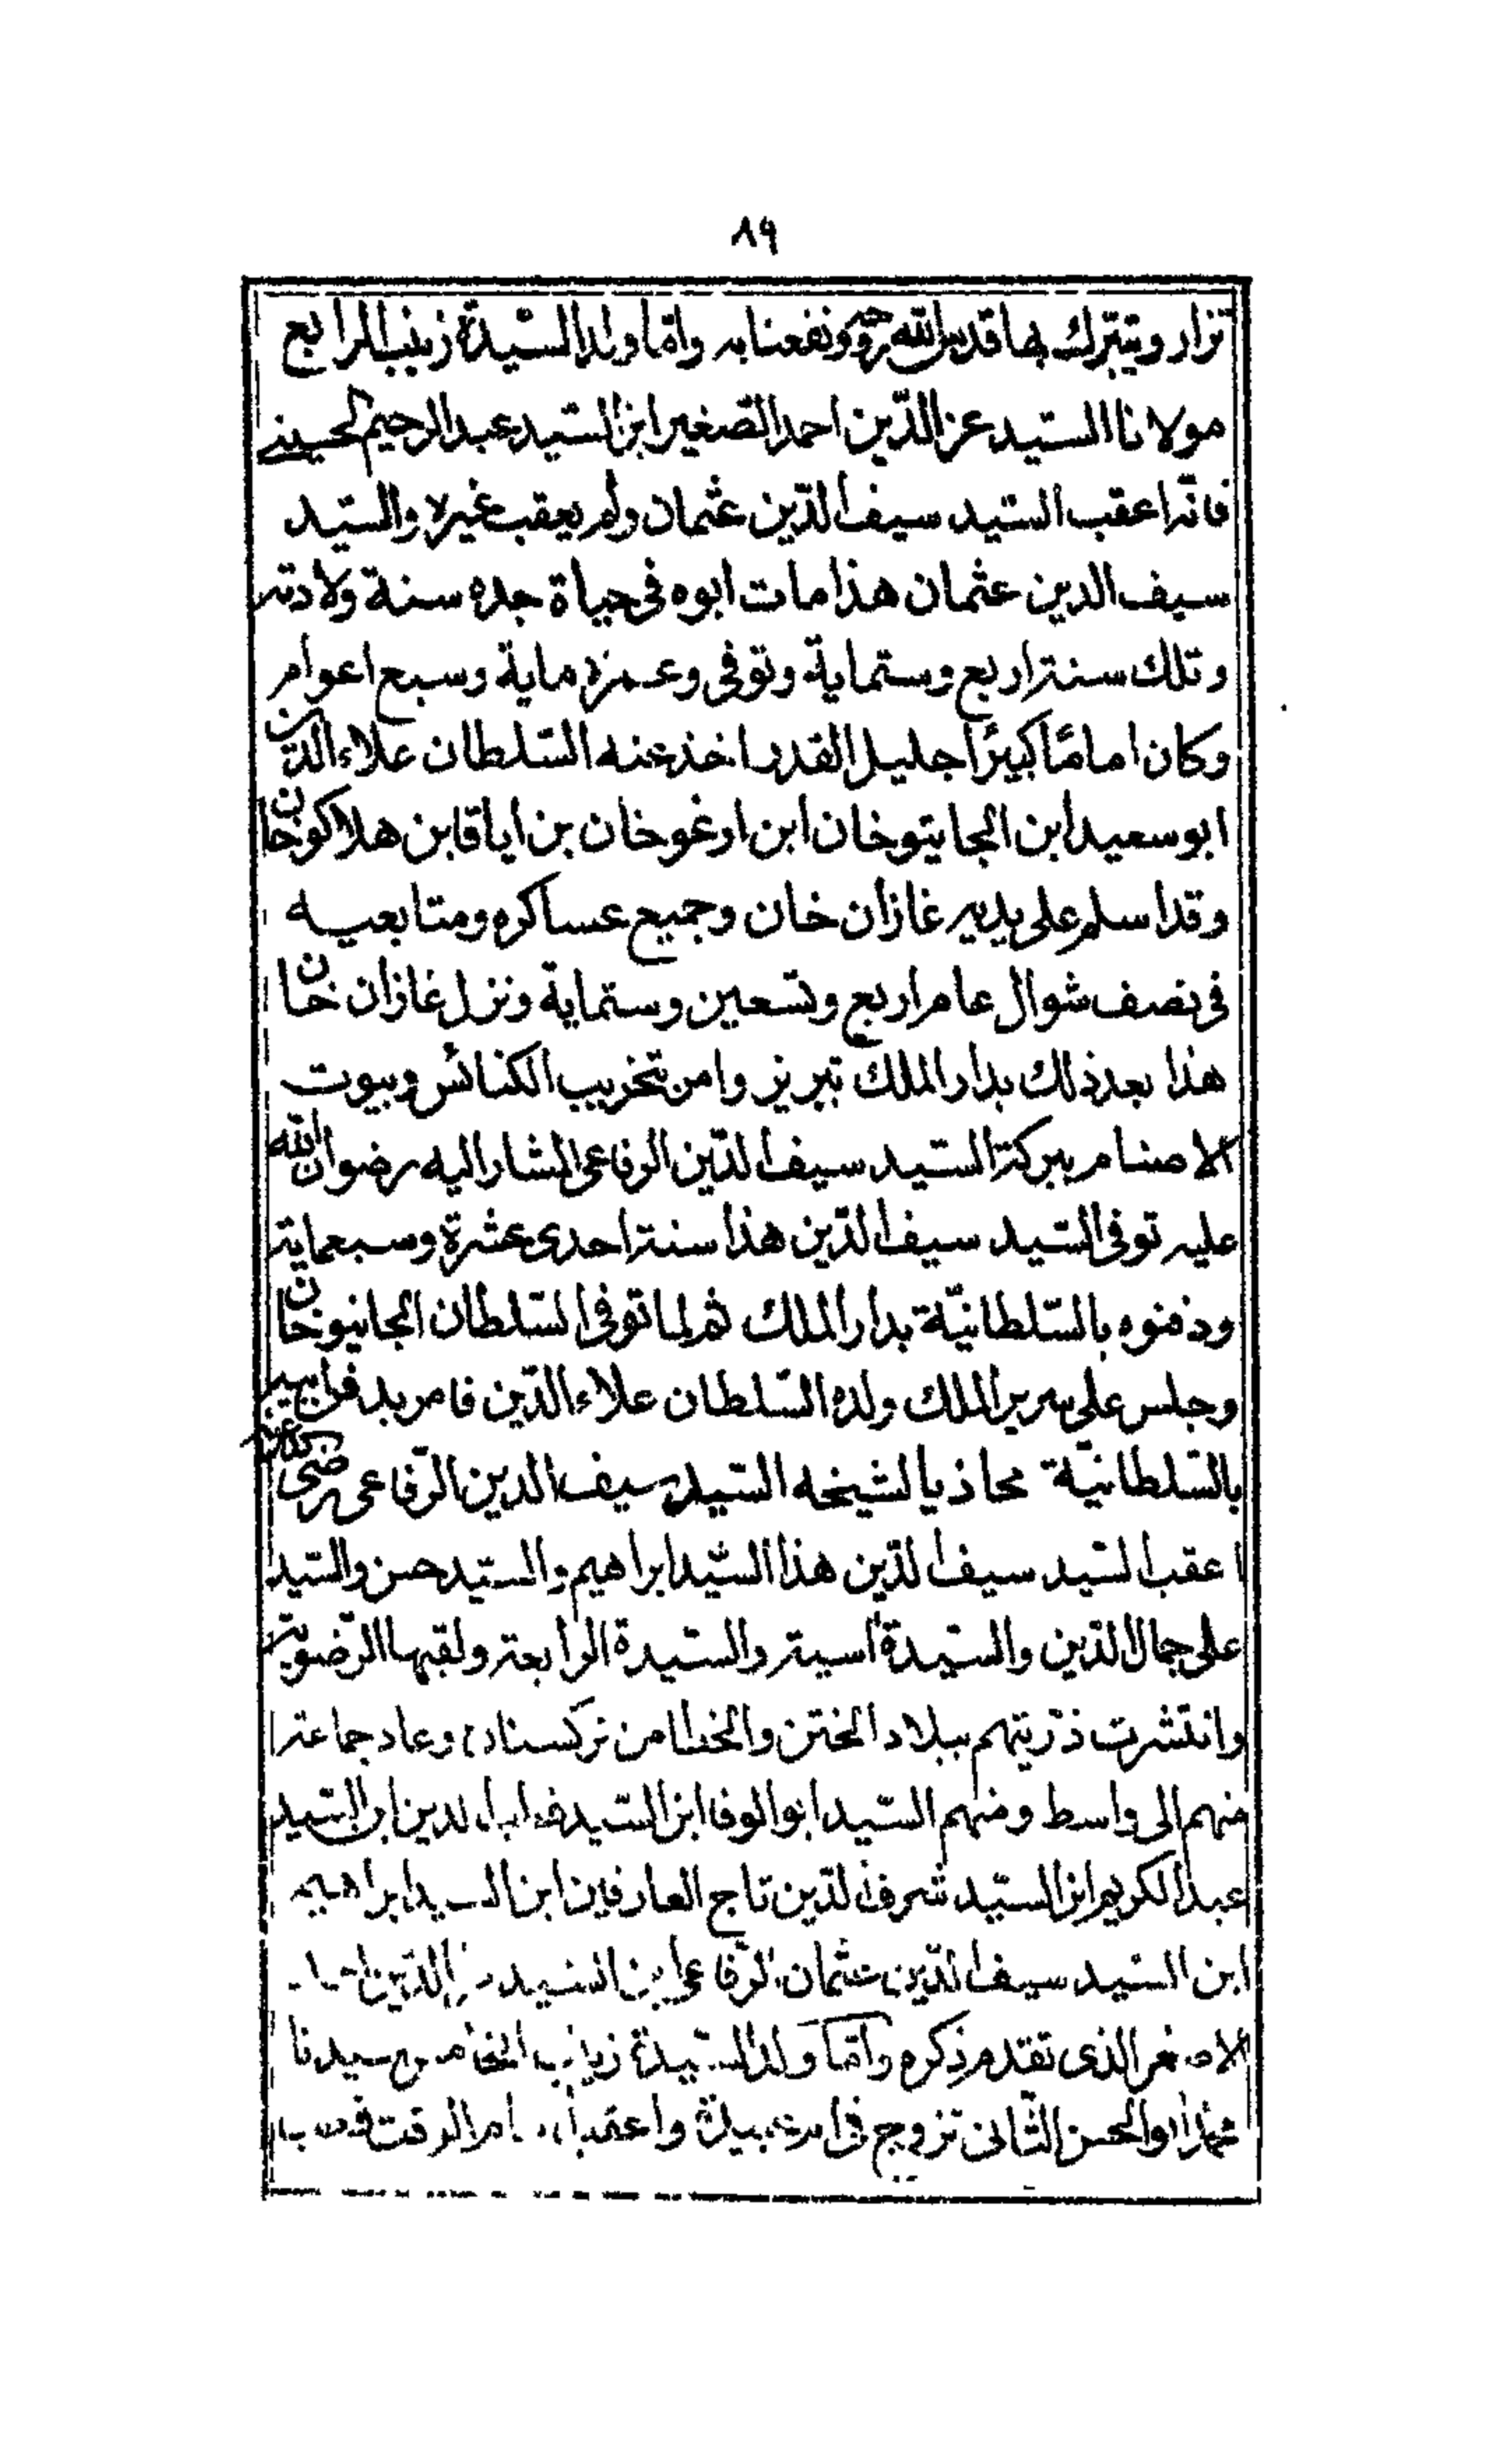 ٨٩
تزار ويتبرك بها قدس الله روحه ونفعنا به واما ولد السيدة زينب الرابع
مولانا السيد عز الدين احمد الصغير ابن السيد عبد الرحيم الحسيني
فانه اعقب السيد سيف الدين عثمان ولم يعقب غيره والسيد
سيف الدين عثمان هذا مات ابوه في حياة جده سنة ولادته
وتلك سنة اربع وستماية وتوفى وعمره ماية وسبع اعوام
وكان اماما كبيرا جليل القدر اخذ عنه السلطان علاء الدين
ابو سعيد ابن الجايتو خان ابن ارغو خان بن اياقا بن هلاكو خان
وقد اسلم على يديه غازان خان وجميع عساكره ومتابعيه
في نصف شوال عام اربع وتسعين وستماية ونزل غازان خان
هذا بعد ذلك بدار الملك تبريز وامر بتخريب الكنائس وبيوت
الاصنام ببركة السيد سيف الدين الرفاعى المشار اليه رضوان الله
عليه توفى السيد سيف الدين هذا سنة احدى عشرة وسبعماية
ودفنوه بالسلطانيّة بدار الملك ثم لما توفى السلطان الجانيو خان
وجلس على سرير الملك ولده السلطان علاء الدين فامر بدفن ابيه
بالسلطانيّة محاذيا لشيخه السيد سيف الدين الرفاعى رضى الله عنه
اعقب السيد سيف الدين هذا السيد ابراهيم والسيد حسن والسيد
على جمال الدين والسيدة اسية والسيدة الرابعة ولقبها الرضوية
وانتشرت ذريتهم ببلاد الختن والخطا من تركستان وعاد جماعة
منهم الى واسط ومنهم السيد ابو الوفا ابن السيد الدين ابن السيد
عبد الكريم ابن السيد شرف الدين تاج العارفين ابن السيد ابراهيم
ابن السيد سيف الدين عثمان الرفاعى ابن السيد الدين
الاصغر الذى تقدم ذكره واما ولد السيدة زينب الخامس سيدنا
ابو الحسن الثانى تزوج فى ام عبيدة